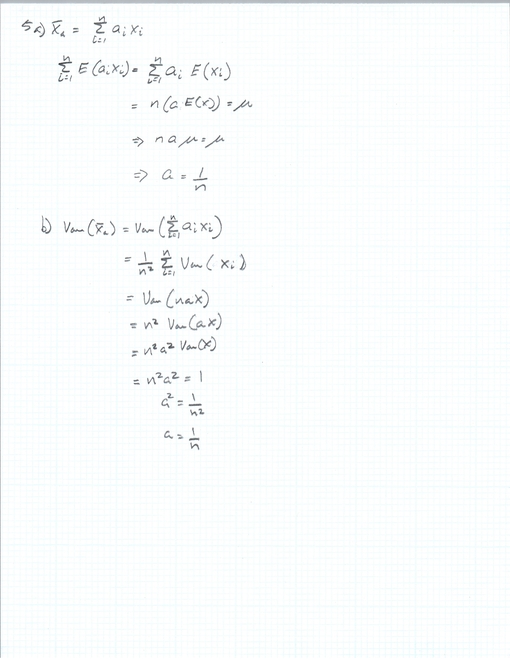 5a) X̄ₐ = Σⁿᵢ₌₁ aᵢ xᵢ
Σⁿᵢ₌₁ E(aᵢxᵢ) = Σⁿᵢ₌₁ aᵢ E(xᵢ)
= n(a E(x)) = μ
⇒ n a μ = μ
⇒ a = 1/n
b) Var(X̄ₐ) = Var(Σⁿᵢ₌₁ aᵢ xᵢ)
= 1/n² Σⁿᵢ₌₁ Var(xᵢ)
= Var(nax)
= n² Var(ax)
= n²a² Var(x)
= n²a² = 1
a² = 1/n²
a = 1/n